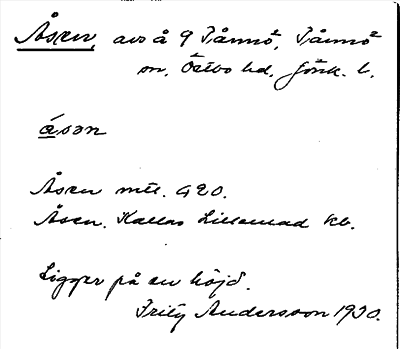 Åsen, avs å 9 Tånnö, Tånnö
sn, Östbo hd, Jönk. l.
åsən
Åsen mtl. 420.
Åsen. Kallas Lillamad kb.
Ligger på en höjd.
Frity Andersson 1930.